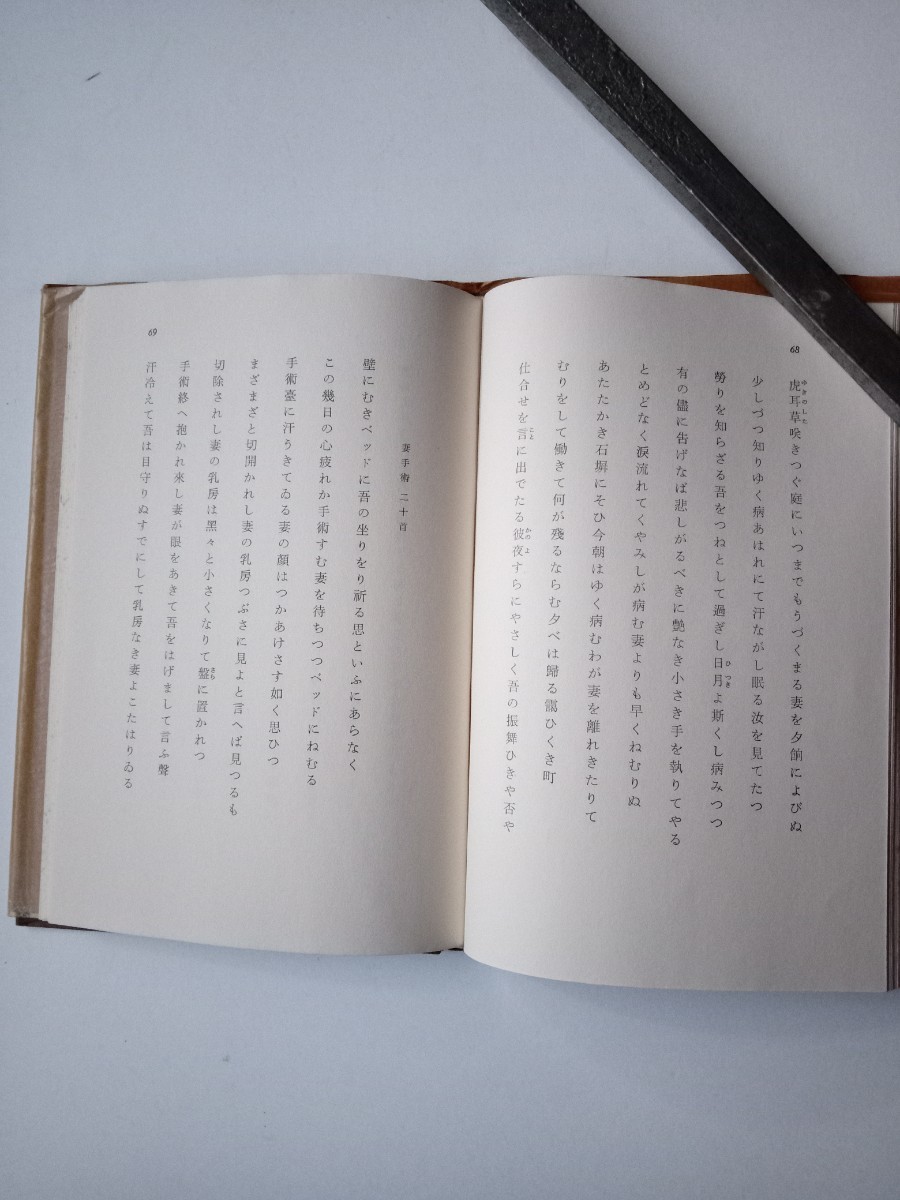 68
虎耳草咲きつぐ庭にいつまでもうづくまる妻を夕餉によびぬ
ゆきのした
少しづつ知りゆく病あはれにて汗ながし眠る汝を見てたつ
勞りを知らざる吾をつねとして過ぎし日月よ斯くし病みつつ
ひつき
有の儘に告げなば悲しがるべきに艶なき小さき手を執りてやる
とめどなく淚流れてくやみしが病む妻よりも早くねむりぬ
あたたかき石塀にそひ今朝はゆく病むわが妻を離れきたりて
むりをして働きて何が殘るならむ夕べは歸る靄ひくき町
仕合せを言に出でたる彼夜すらにやさしく吾の振舞ひきや否や
こと
かのよ
妻手術 二十首
壁にむきベッドに吾の坐りをり祈る思といふにあらなく
この幾日の心疲れか手術すむ妻を待ちつつベッドにねむる
手術臺に汗うきてゐる妻の顏はつかあけさす如く思ひつ
まざまざと切開かれし妻の乳房つぶさに見よと言へば見つるも
切除されし妻の乳房は黑々と小さくなりて盤に置かれつ
さら
手術終へ抱かれ來し妻が眼をあきて吾をはげまして言ふ聲
汗冷えて吾は目守りぬすでにして乳房なき妻よこたはりゐる
69